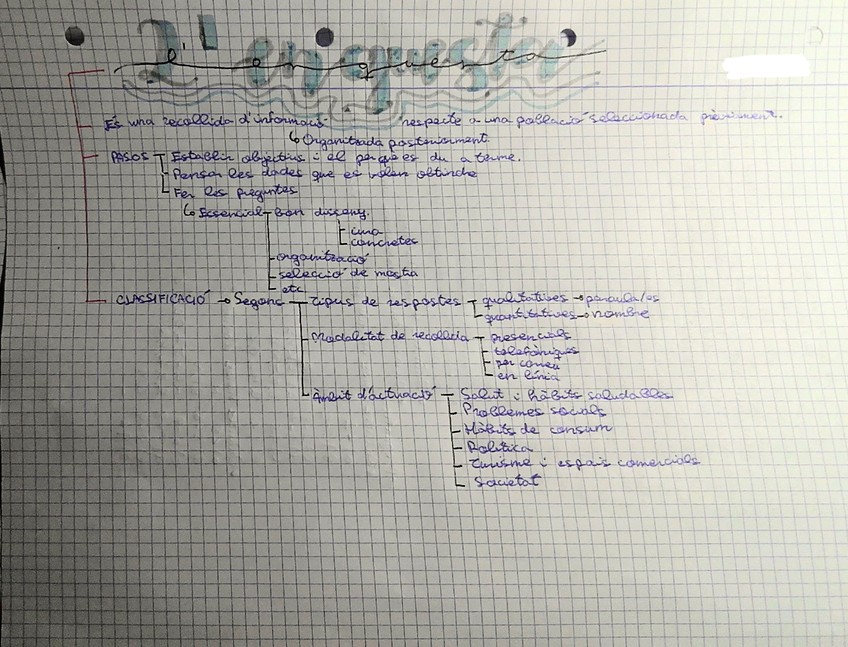 L'enquesta
És una recollida d'informació respecte a una població seleccionada prèviament.
↳ Organitzada posteriorment.
PASOS Establir objectius i el perquè es du a terme.
Pensar les dades que es volen obtindre
Fer les preguntes
↳ Essencial bon disseny.
concretes
organització
selecció de mostra
etc
CLASSIFICACIÓ → Segons tipus de respostes qualitatives → paraula/es
quantitatives → nombre
Modalitat de recollida presencials
telefòniques
per correu
en línia
Àmbit d'actuació Salut i hàbits saludables
Problemes socials
Hàbits de consum
Política
Turisme i espais comercials
Societat